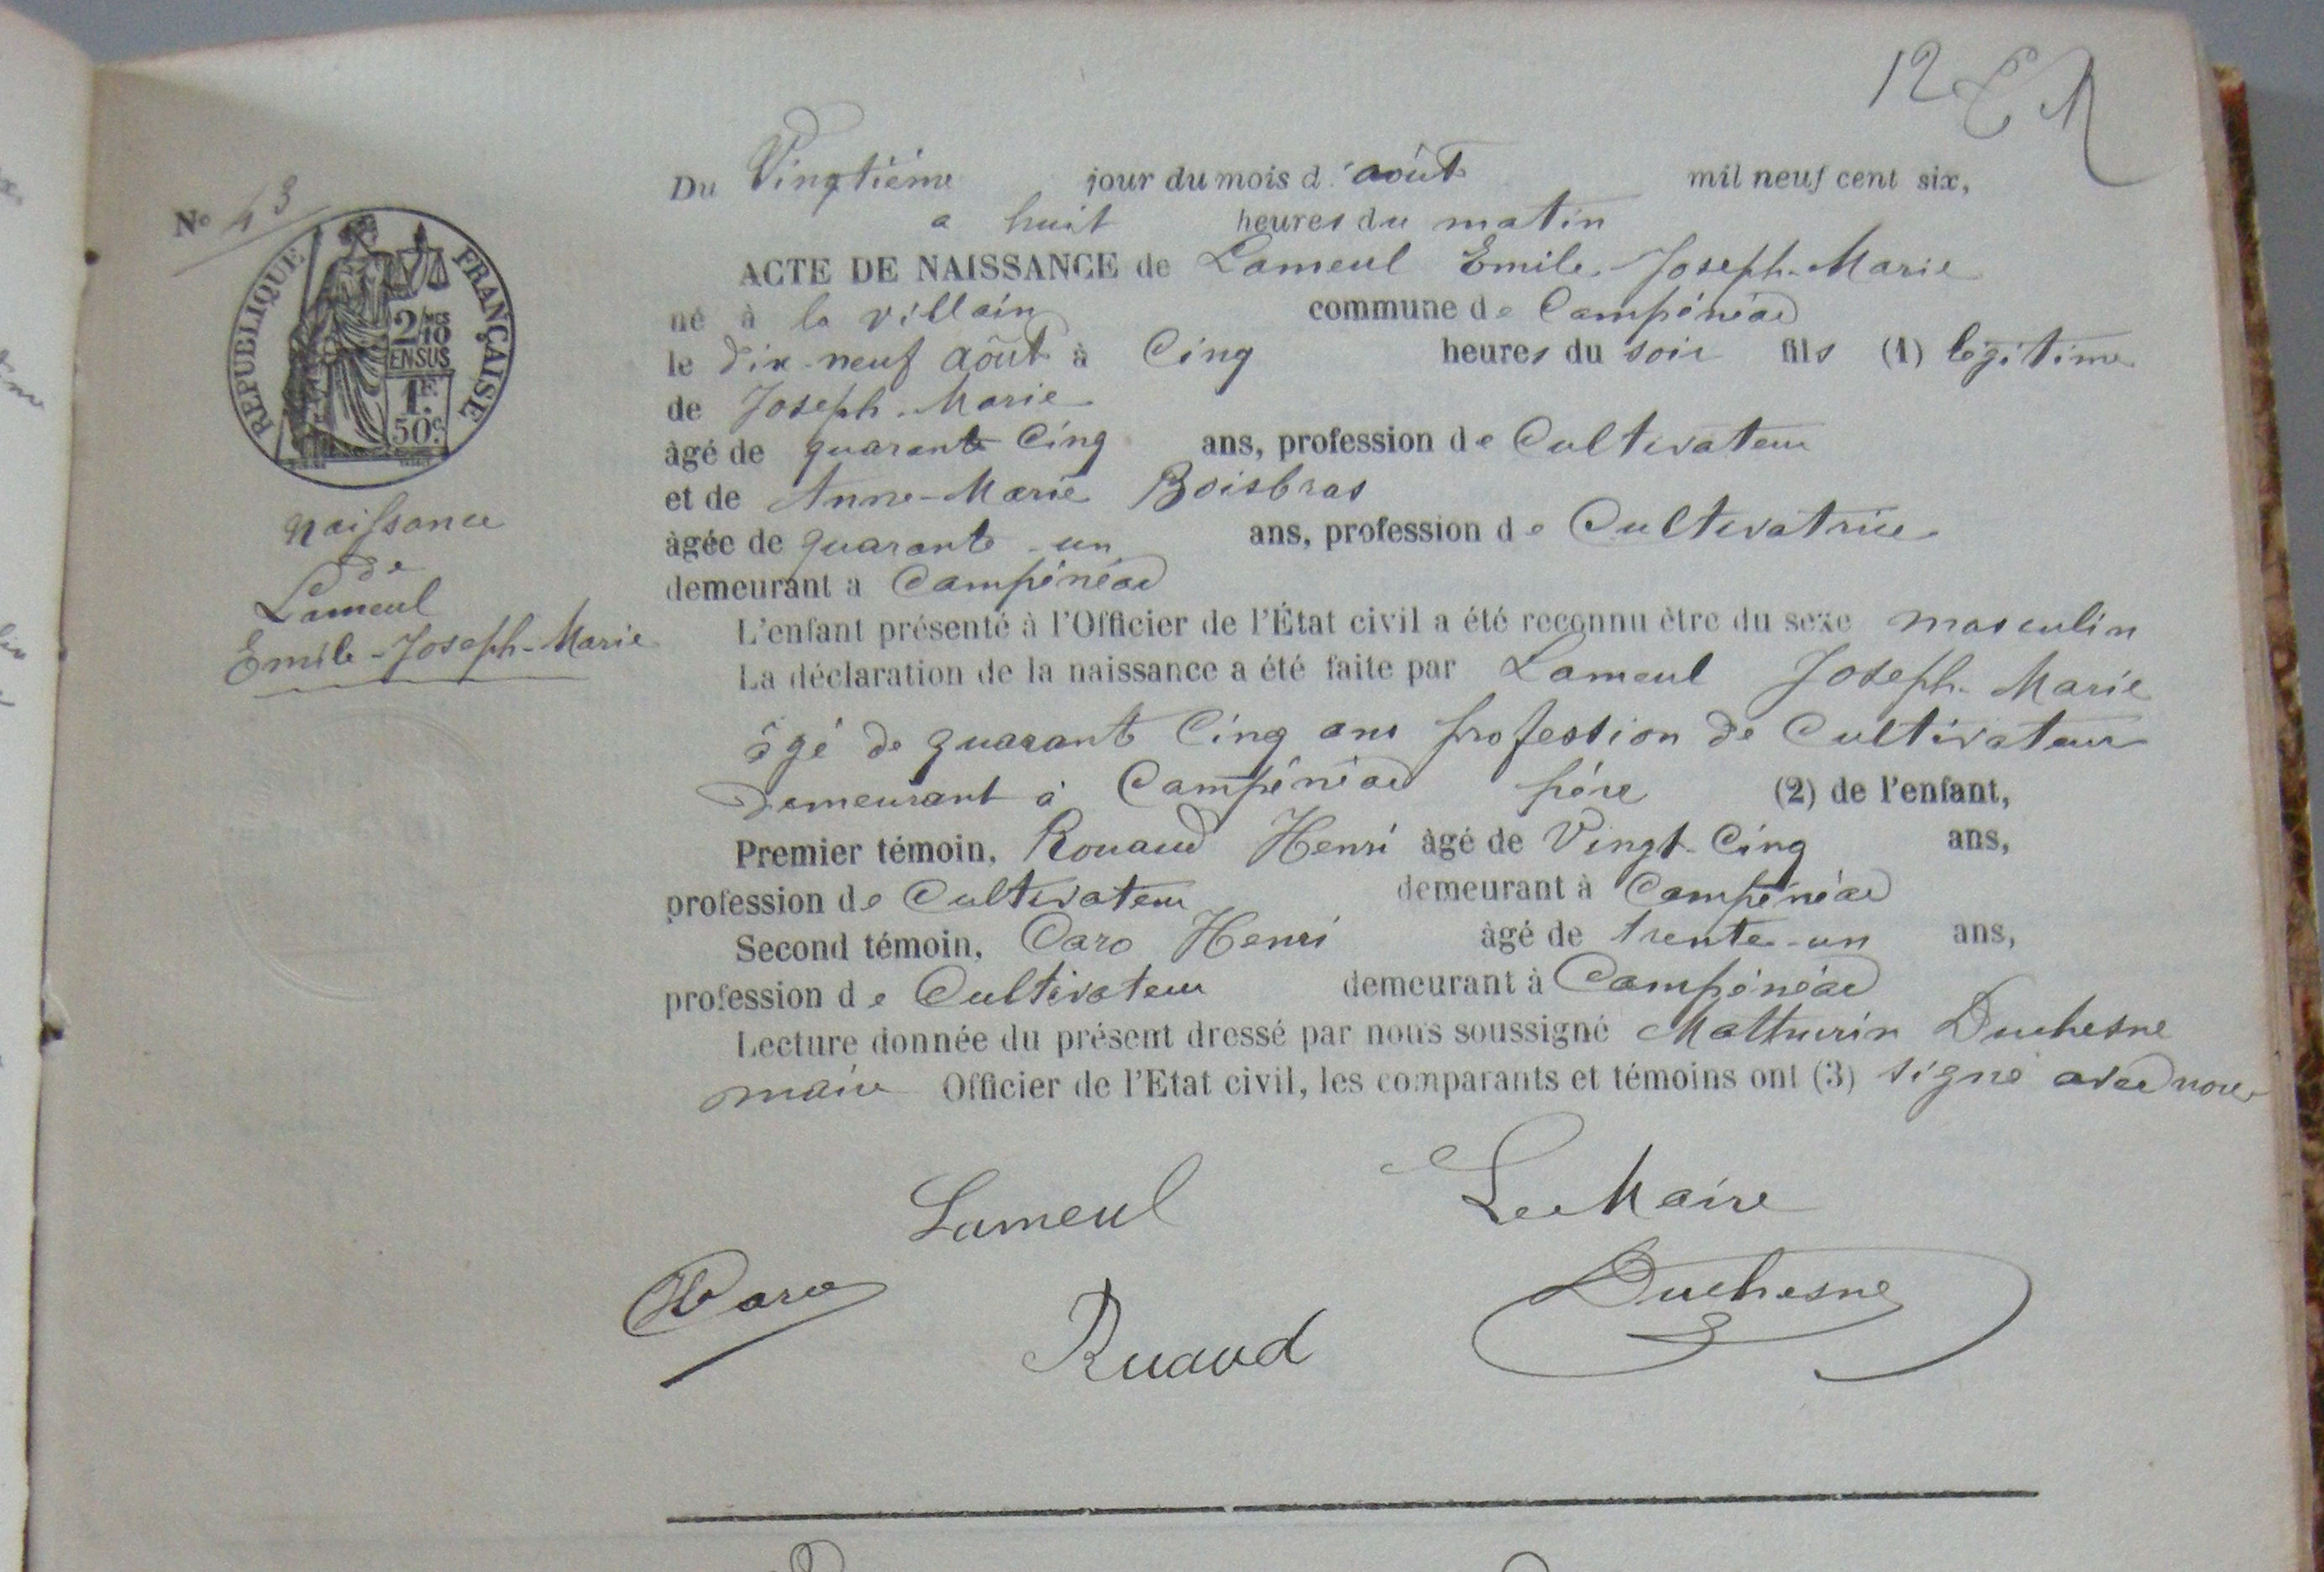 12
N° 43
RÉPUBLIQUE FRANÇAISE
2/10 MES
EN SUS
1F.
50c.
Naissance
de
Lameul
Emile-Joseph-Marie
Du Vingtième jour du mois d'août mil neuf cent six,
a huit heures du matin
ACTE DE NAISSANCE de Lameul Emile-Joseph-Marie
né à la villain commune de Campénéac
le dix-neuf août à Cinq heures du soir fils (1) légitime
de Joseph-Marie
âgé de quarante Cinq ans, profession de Cultivateur
et de Anne-Marie Boisbras
âgée de quarante-un ans, profession de Cultivatrice
demeurant a Campénéac
L'enfant présenté à l'Officier de l'État civil a été reconnu être du sexe masculin
La déclaration de la naissance a été faite par Lameul Joseph-Marie
âgé de quarante Cinq ans profession de Cultivateur
Demeurant à Campénéac père (2) de l'enfant,
Premier témoin, Rouaud Henri âgé de Vingt-Cinq ans,
profession de Cultivateur demeurant à Campénéac
Second témoin, Caro Henri âgé de trente-un ans,
profession de Cultivateur demeurant à Campénéac
Lecture donnée du présent dressé par nous soussigné Mathurin Duchesne
maire Officier de l'Etat civil, les comparants et témoins ont (3) signé avec nous
Lameul Le Maire
Caro Ruaud Duchesne